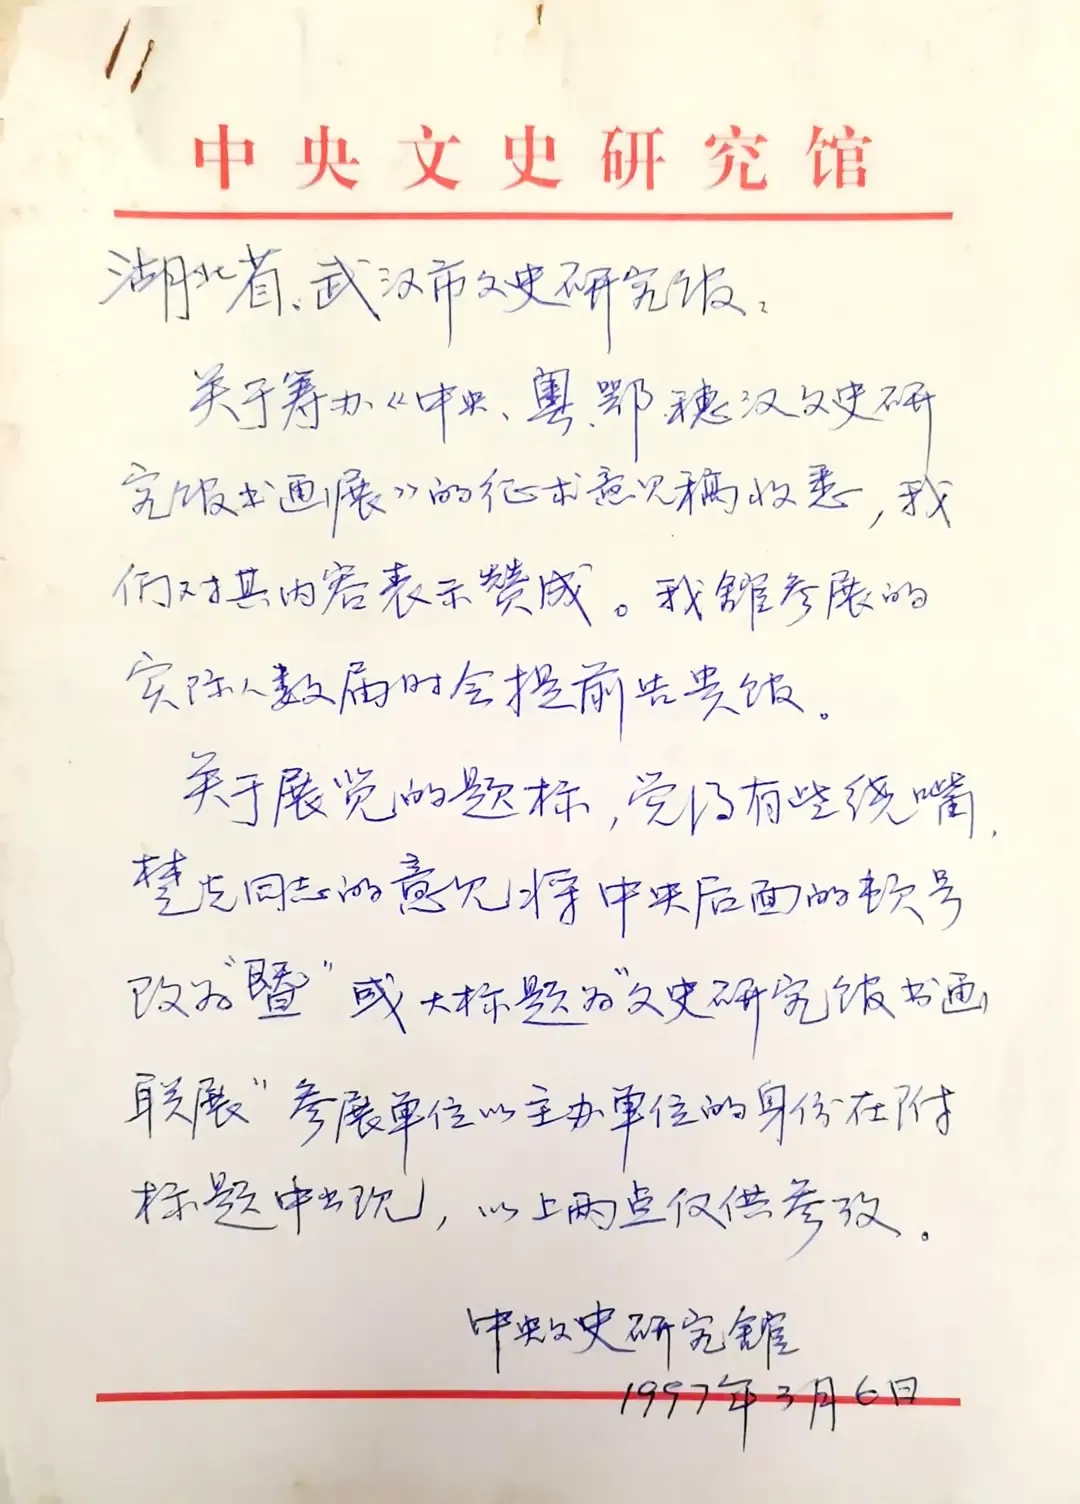 中央文史研究馆
湖北省、武汉市文史研究馆:
关于筹办《中央、粤、鄂、穗汉文史研
究馆书画展》的征求意见稿收悉,我
们对其内容表示赞成。我舘参展的
实际人数届时会提前告贵馆。
关于展览的题标,觉得有些绕嘴,
楚老同志的意见,将中央后面的顿号
改为"暨"或大标题为"文史研究馆书画
联展"参展单位以主办单位的身份在附
标题中出现,以上两点仅供参考。
中央文史研究舘
1997年3月6日